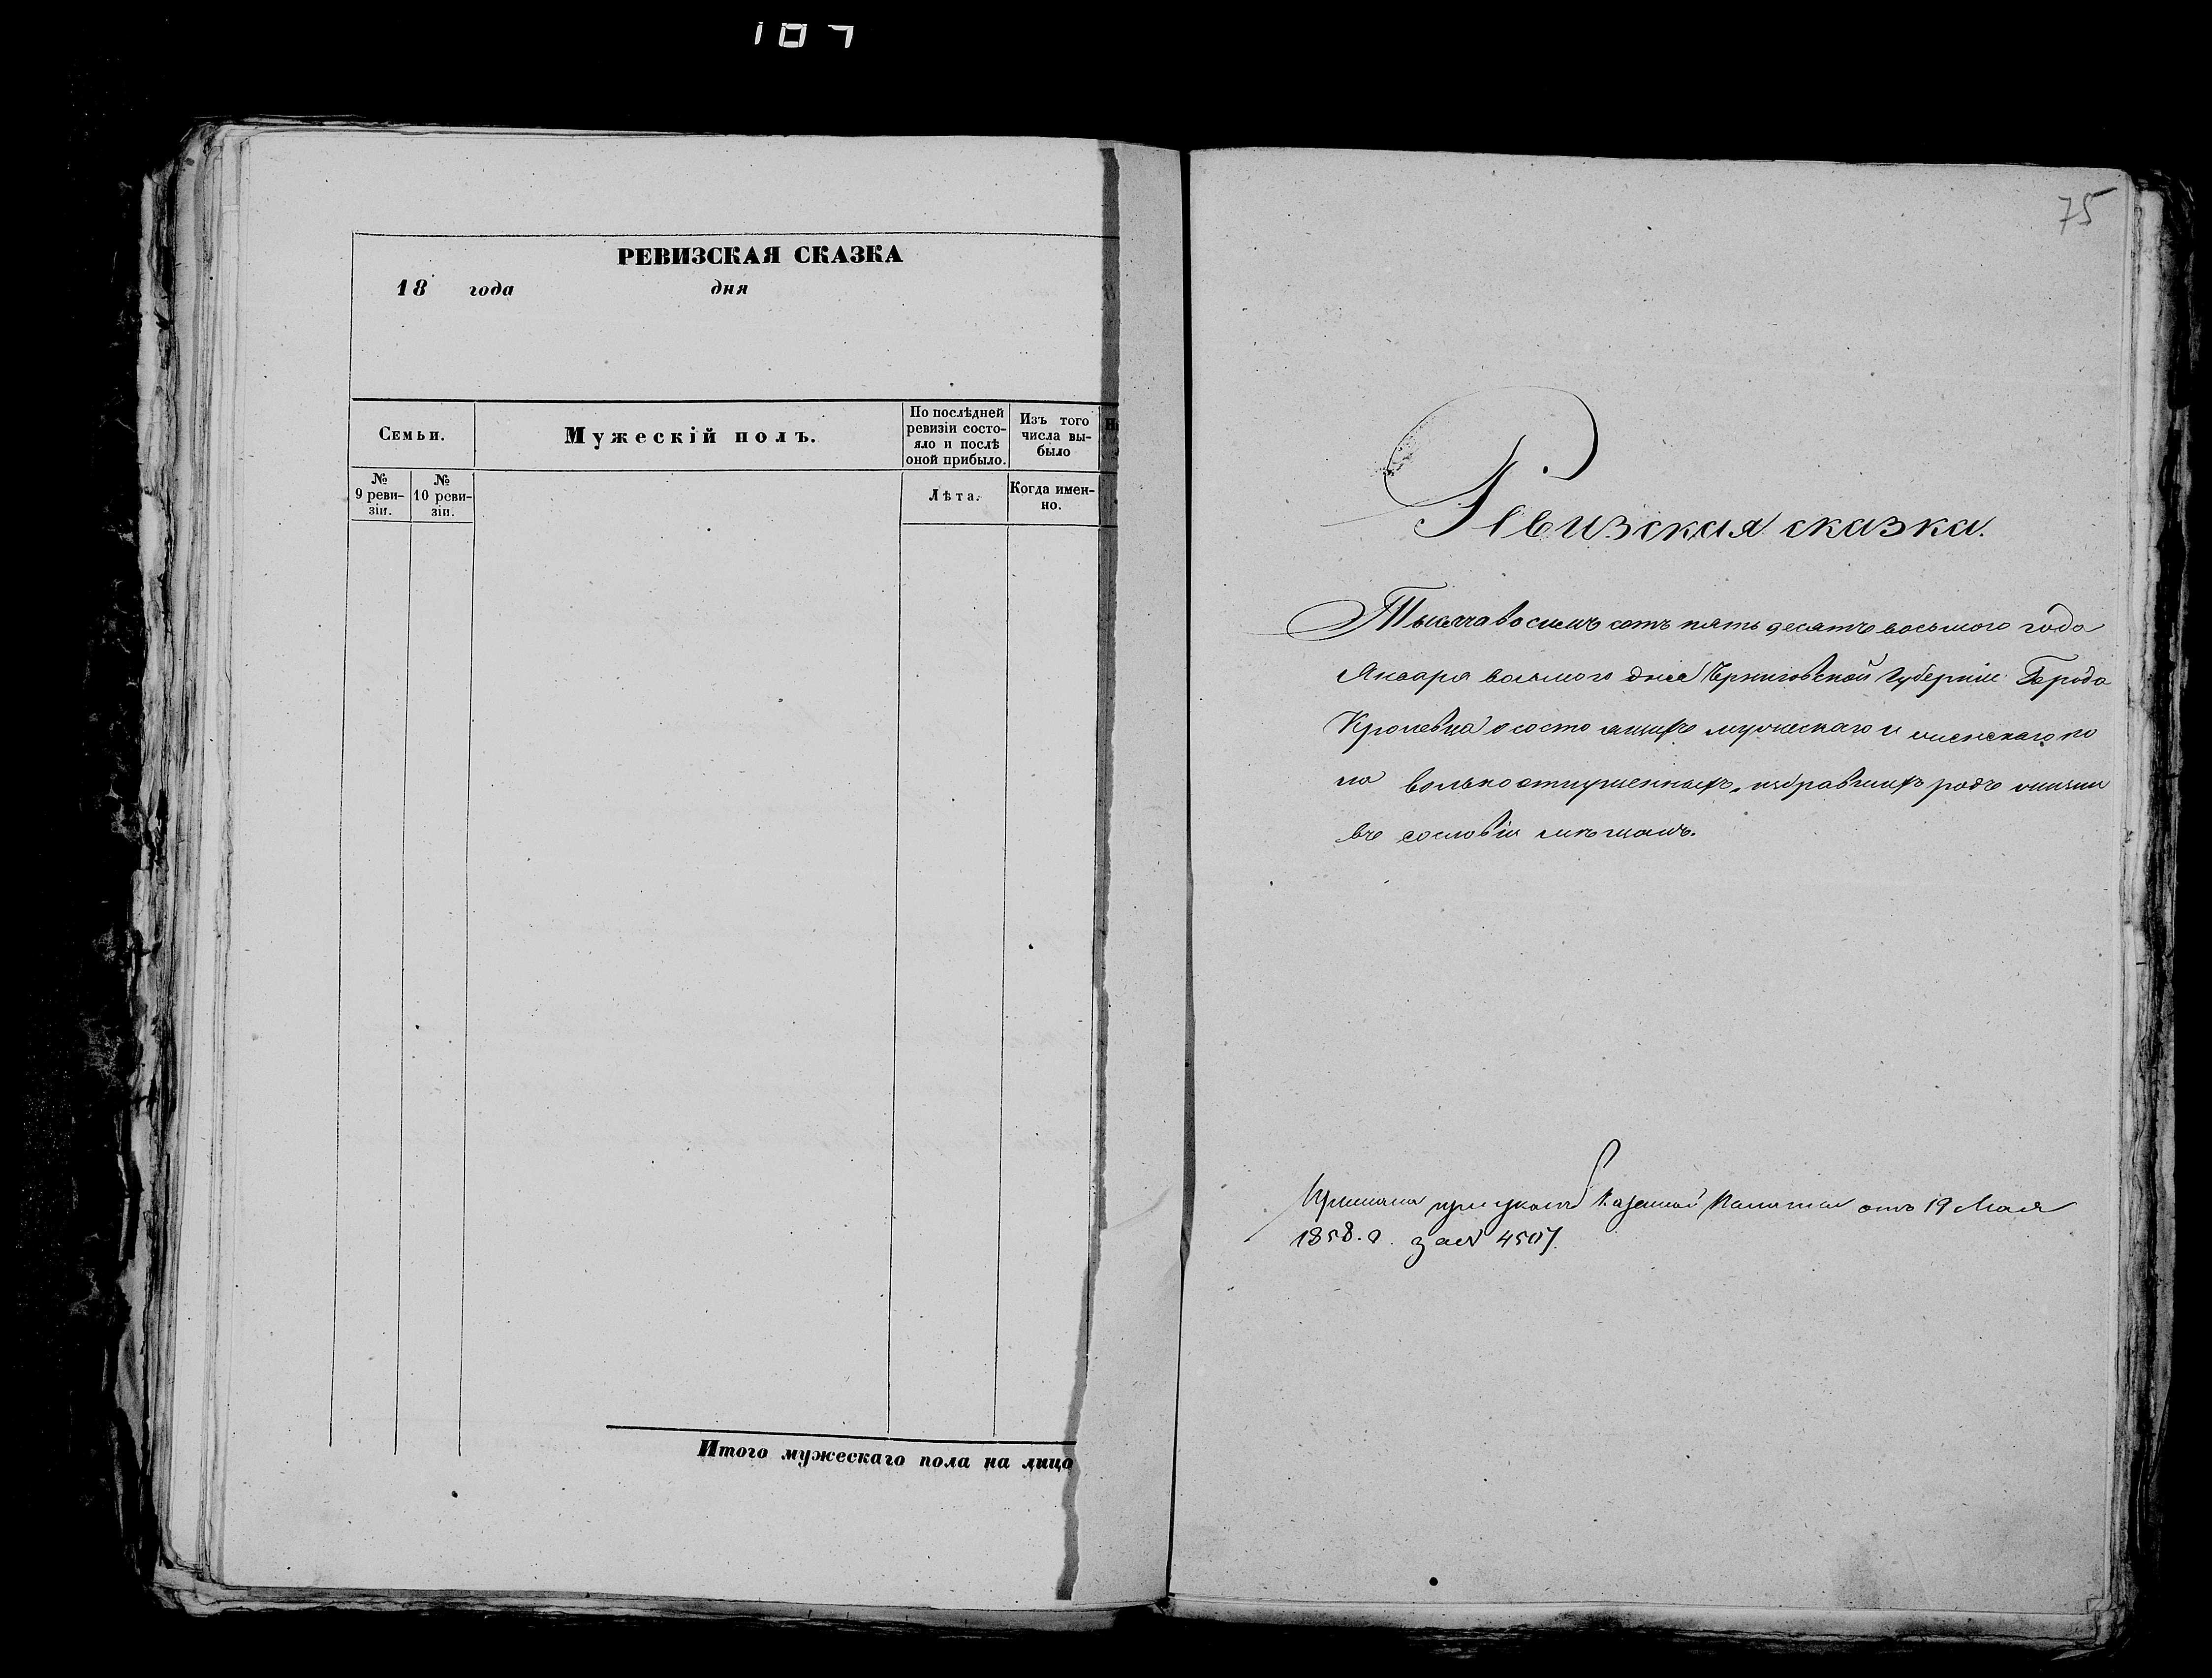 107
РЕВИЗСКАЯ СКАЗКА
18 года дня
Семьи.
Мужескій полъ.
По послѣдней
ревизіи состо-
яло и послѣ
оной прибыло.
Изъ того
числа вы-
было
№
9 реви-
зіи.
№
10 реви-
зіи.
Лѣта.
Когда имен-
но.
Итого мужескаго пола на лицо
75
Ревизская сказка.
Тысяча восемь сотъ пять десятъ восьмого года
Января восьмого дня Черниговской Губерніи Города
Кролевца о состоящихъ мужескаго и женскаго по
ла вольноотпущенныхъ, избравшихъ родъ жизни
въ сословіи мѣщанъ.
при указѣ Казенной Палаты отъ 19 Мая
1858. г. за № 4507.